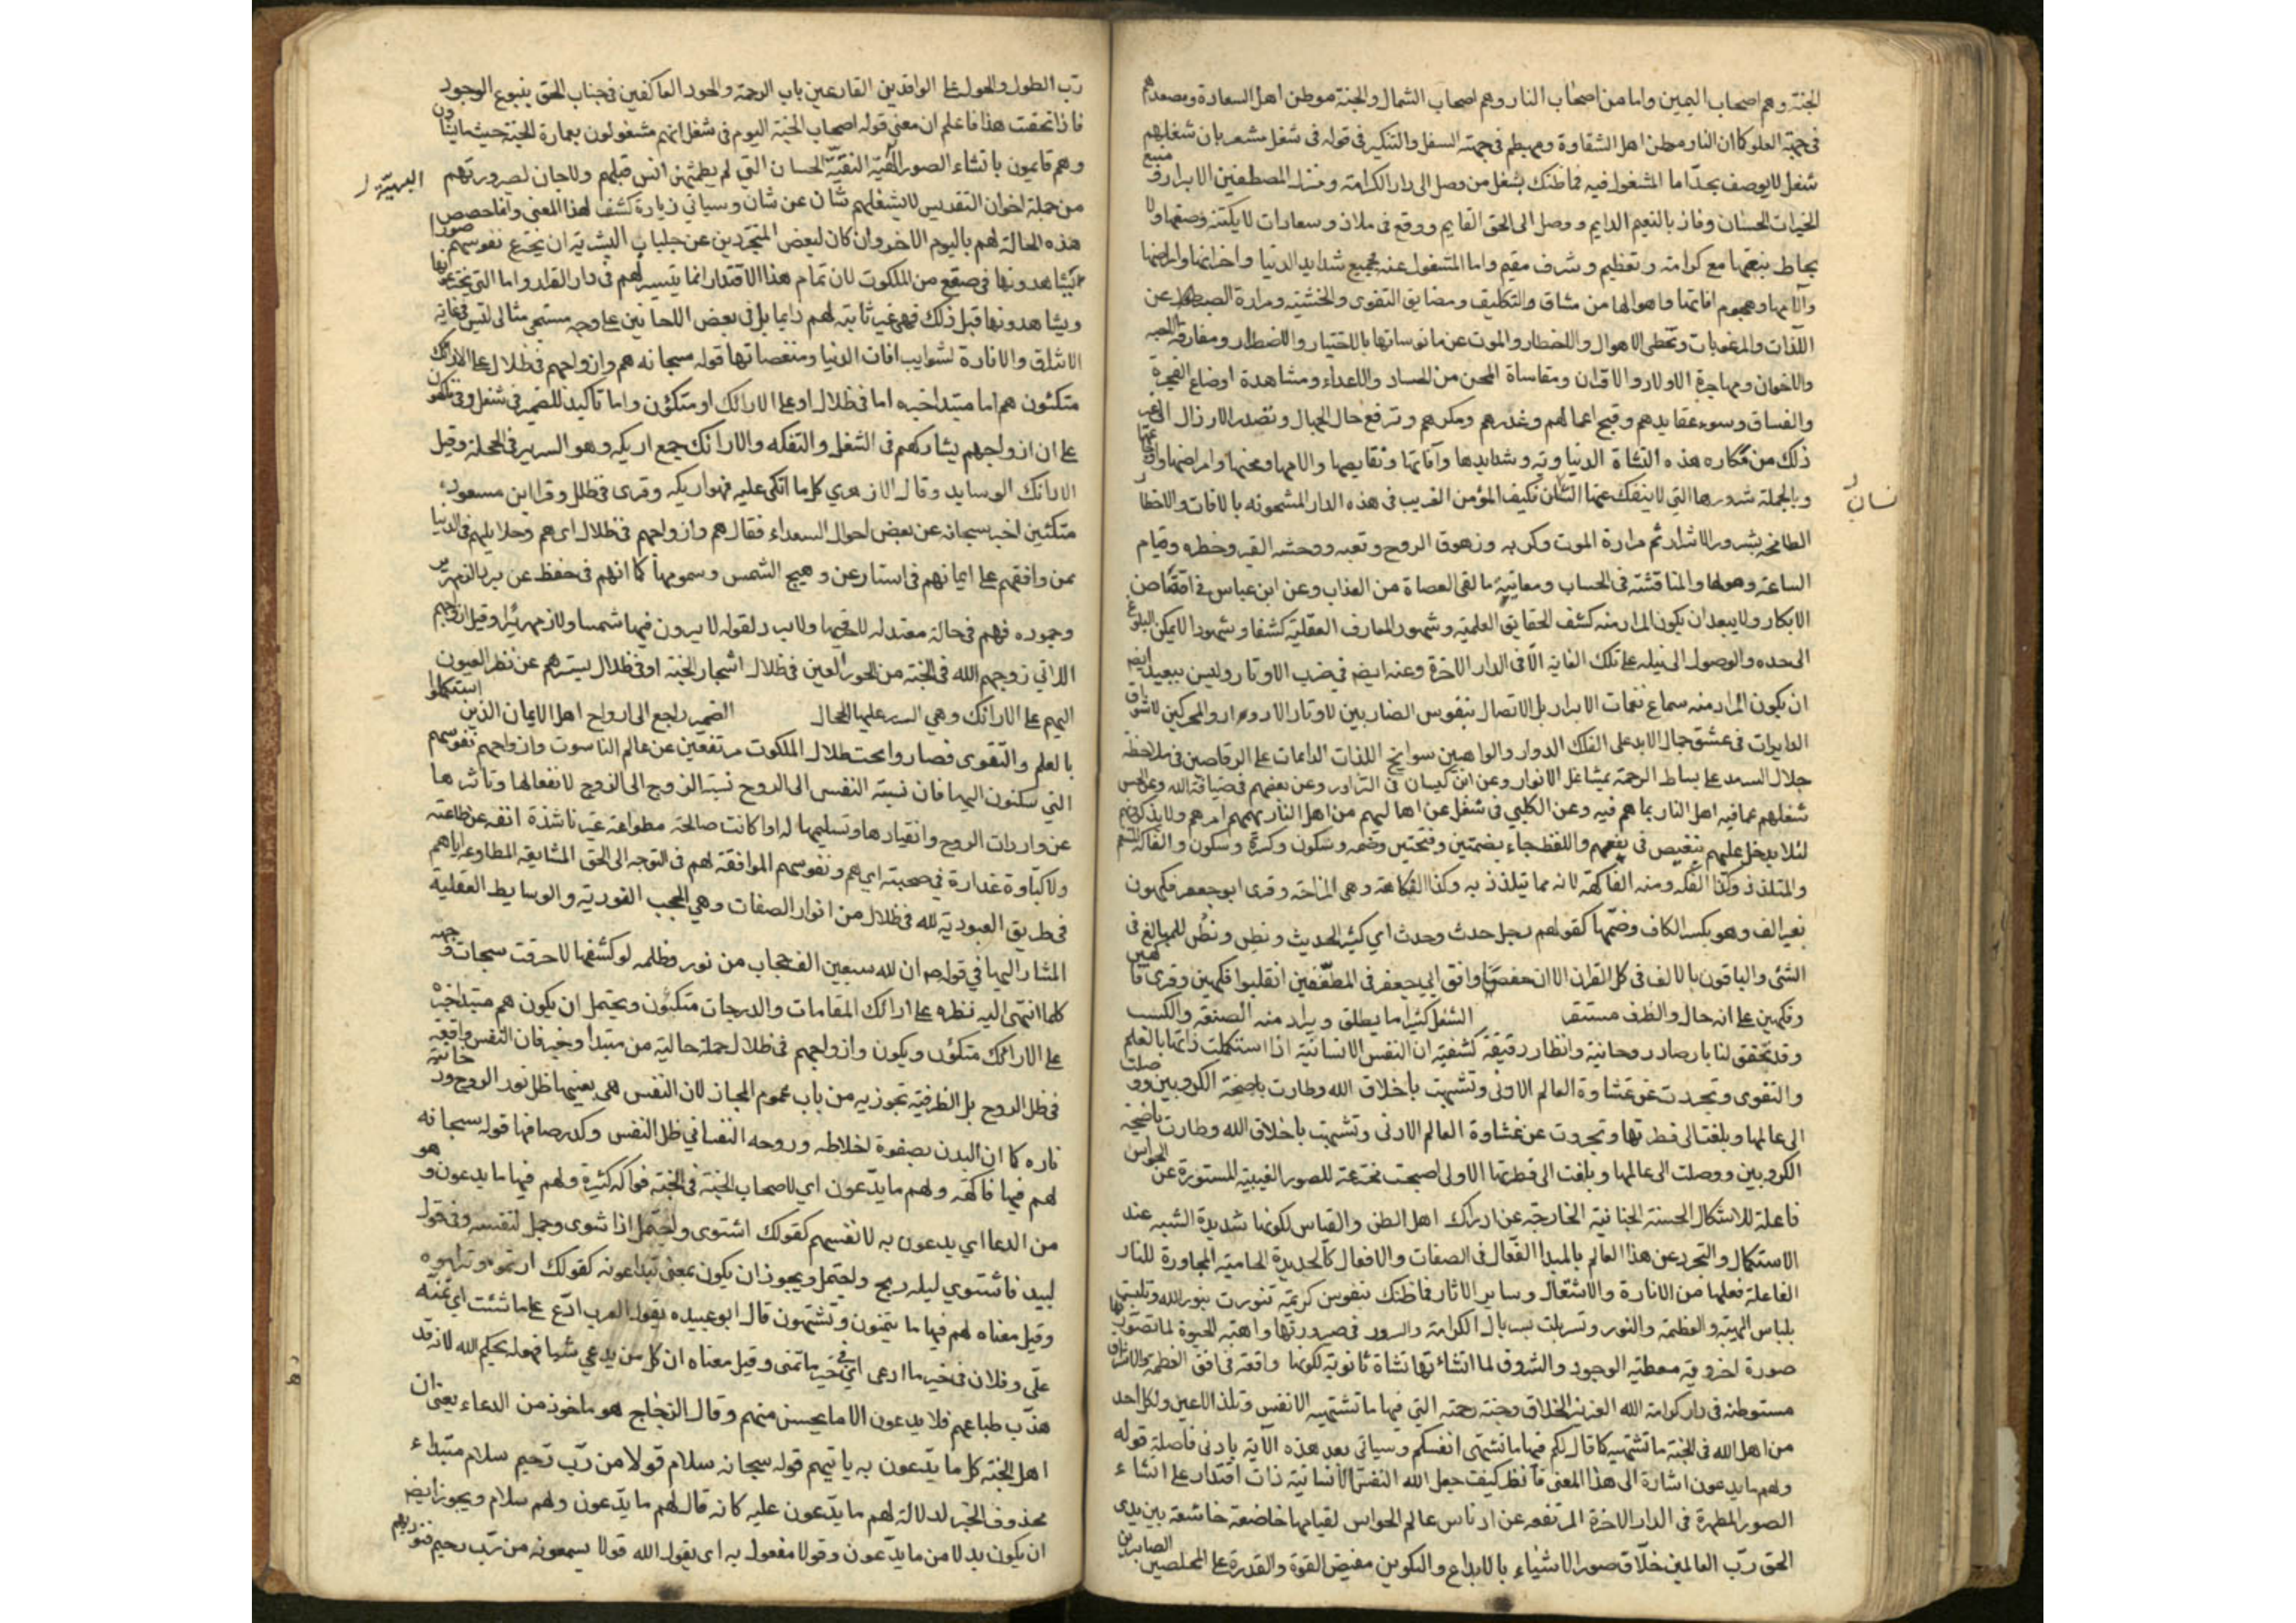 الجنة وهم اصحاب اليمين واما من اصحاب النار وهم اصحاب الشمال والجنة موطن اهل السعادة ومصعدهم
في جهة العلو كما ان النار موطن اهل الشقاوة ومهبطهم في جهة السفل والتنكير في قوله في شغل مشعر بان شغلهم
شغل لا يوصف بحد اما المشغول فيه فما ظنك بشغل من وصل الى دار الكرامة ومنزل المصطفين الابرار ومنبع
الخيرات الحسان وفاز بالنعيم الدايم ووصل الى الحق القايم ووقع في ملاذ وسعادات لا يكتنه وصفها ولا
يحاط بنعتها مع كرامة وتعظيم وشرف مقيم واما المشغول عنه فجميع شدايد الدنيا واحزانها وامراضها
وآلامها وهجوم آفاتها واهوالها من مشاق والتكليف ومضايق التقوى والخشية ومرارة الصبر عن
اللذات والمرغوبات وتخطى الاهوال والاخطار والموت عن مانوساتها بالاختيار والاضطرار ومفارقة الاحبة
والاخوان ومهاجرة الاولاد والاقران ومقاساة المحن من الحساد والاعداء ومشاهدة اوضاع الفجرة
والفساق وسوء عقايدهم وقبح اعمالهم وغدرهم ومكرهم وترفع حال الجهال وتصدر الارذال الى غير
ذلك من مكاره هذه النشاة الدنياوية وشدايدها وآفاتها ونقايصها والامها ومحنها وامراضها
وبالجملة شرورها التي لا ينفك عنها الانسان فكيف المؤمن الغريب في هذه الدار المشحونه بالافات والاخطار
الطافحة بشرور الاشرار ثم مرارة الموت وكربه وزهوق الروح وتعبه ووحشه القبر وخطره وقيام
الساعة وهولها والمناقشة في الحساب ومعاينة ما لقى العصاة من العذاب وعن ابن عباس في افتضاض
الابكار ولا يبعد ان يكون المراد منه كشف الحقايق العلمية وشهود المعارف العقلية كشفا وشهودا لا يمكن البلوغ
الى حده والوصول الى نيله على تلك الغاية الا في الدار الاخرة وعنه ايضا في ضرب الاوتار وليس ببعيد ايضا
ان يكون المراد منه سماع نغمات الابرار بل الاتصال بنفوس الضاربين لاوتار الادوار والمحركين لاشواق
الدايرات في عشق جمال الابد على الفلك الدوار والواهبين سوانح اللذات الدايمات على الرقاصين في ملاحظة
جلال السرمد على بساط الرحمة بمشاعل الانوار وعن ابن كيسان في التزاور وعن بعضهم في ضيافة الله وعن الحسن
شغلهم عما فيه اهل النار بما هم فيه وعن الكلبي في شغل عن اهاليهم من اهل النار لا يهمهم امرهم ولا يذكرونهم
لئلا يدخل عليهم تنغيص في نعيمهم واللفظ جاء بضمتين وفتحتين وضمه وسكون وكسرة وسكون والفاكه المتنعم
والمتلذذ وكذا الفكه ومنه الفاكهة لانه مما يتلذذ به وكذا الفكاهة وهي المزاحة وقرى ابو جعفر فكهون
بغير الف وهو بكسر الكاف وضمها كقولهم رجل حدث وحدث اي كثير الحديث ونطس ونطس للمبالغ في
الشئ والباقون بالالف في كل القرآن الا ان حفصا وافق ابي جعفر في المطففين انقلبوا فكهين وقرى فاكهين
وفكهين على انه حال والظرف مستقر الشغل كثيرا ما يطلق ويراد منه الصنعة والكسب
وقد تحقق لنا بارصاد روحانية وانظار دقيقة كشفية ان النفس الانسانية اذا استكملت ذاتها بالعلم
والتقوى وتجردت عن غشاوة العالم الادنى وتشبهت باخلاق الله وطارت باجنحة الكروبيين ووصلت
الى عالمها وبلغت الى فطرتها وتجردت عن غشاوة العالم الادنى وتشبهت باخلاق الله وطارت باجنحة
الكروبيين ووصلت الى عالمها وبلغت الى فطرتها الاولى اصبحت مخترعة للصور الغيبية المستورة عن الحواس
فاعلة للاشكال الحسنة الجنانية الخارجة عن ادراك اهل الظن والقياس لكونها شديدة الشبه عند
الاستكمال والتجرد عن هذا العالم بالمبدا الفعال في الصفات والافعال كالحديدة الحامية المجاورة للنار
الفاعلة فعلها من الانارة والاشتعال وساير الاثار فما ظنك بنفوس كريمة تنورت بنور الله وتلبست
بلباس الهيبة والعظمة والنور وتسربلت بسربال الكرامة والسرور في صيرورتها واهبة الحيوة لما تصورتها
صورة اخروية معطية الوجود والشروق لما انشاتها نشاة ثانوية لكونها واقعة في افق العظمة والاشراق
مستوطنة في دار كرامة الله العزيز الخلاق وجنة رحمته التي فيها ما تشتهيه الانفس وتلذ الاعين ولكل احد
من اهل الله في الجنة ما تشتهيه كما قال لكم فيها ما تشتهى انفسكم وسياتي بعد هذه الآية بادنى فاصلة قوله
ولهم ما يدعون اشارة الى هذا المعنى فانظر كيف جعل الله النفس الانسانية ذات اقتدار على انشاء
الصور المطهرة في الدار الاخرة المرتفعه عن ادناس عالم الحواس لقيامها خاضعة خاشعة بين يدى
الحق رب العالمين خلاق صور الاشياء بالابداع والتكوين مفيض القوة والقدرة على المخلصين الصابرين
نسان
رب الطول والحول على الوافدين القارعين باب الرحمة والجود العاكفين في جناب الحق ينبوع الوجود
فاذا تحققت هذا فاعلم ان معنى قوله اصحاب الجنة اليوم في شغل انهم مشغولون بعمارة الجنة حيث ما يشاؤن
وهم قايمون بانشاء الصور البهية النقية الحسان التي لم يطمثهن انس قبلهم ولا جان لصيرورتهم
البهيّة
من جملة اخوان التقديس لا يشغلهم شان عن شان وسياتي زيادة كشف لهذا المعنى وانما حصص
هذه الحالة لهم باليوم الاخر وان كان لبعض المتجردين عن جلباب البشرية ان يخترع نفوسهم صورا
يشاهدونها في صقع من الملكوت لان تمام هذا الاقتدار انما يتيسر لهم في دار القرار واما التي يخترعونها
ويشاهدونها قبل ذلك فهي غير ثابتة لهم دايما بل في بعض الاحايين على وجه مثالى ليس في غاية
الاشراق والانارة لشوايب افات الدنيا ومنغصاتها قوله سبحانه هم وازواجهم في ظلال على الارائك
متكئون هم اما مبتدا خبره اما في ظلال او على الارائك او متكؤن واما تاكيد للضمير في شغل وفي فاكهون
على ان ازواجهم يشاركهم في الشغل والتفكه والارائك جمع اريكه وهو السرير في الحجلة وقيل
الارائك الوسايد وقال الازهري كل ما اتكى عليه فهو اريكه وقرى في ظلل وقرا ابن مسعود
متكئين اخبر سبحانه عن بعض احوال السعداء فقال هم وازواجهم في ظلال اى هم وحلايلهم في الدنيا
ممن وافقهم على ايمانهم في استار عن وهيج الشمس وسمومها كما انهم في حفظ عن برد الزمهرير
وجموده فهم في حالة معتدله لا حر فيها ولا برد لقوله لا يرون فيها شمسا ولا زمهريرا وقيل ازواجهم
اللاتي زوجهم الله في الجنة من الحور العين في ظلال اشجار الجنة او في ظلال يسترهم عن نظر العيون
اليهم على الارائك وهي السرر عليها الحجال الضمير راجع الى ارواح اهل الايمان الذين استكملوا
بالعلم والتقوى فصاروا تحت ظلال الملكوت مرتفعين عن عالم الناسوت وازواجهم نفوسهم
التي سكنون اليها فان نسبة النفس الى الروح نسبة الزوج الى الزوج لانفعالها وتاثرها
عن واردات الروح وانقيادها وتسليمها له اذا كانت صالحة مطواعة غير ناشزة انفة عن طاعته
ولا غدارة في صحبته اى هم ونفوسهم الموافقة لهم في التوجه الى الحق المشايعة المطاوعة اياهم
في طريق العبودية لله في ظلال من انوار الصفات وهي الحجب النورية والوسايط العقلية
المشار اليها في قوله ص ان لله سبعين الف حجاب من نور وظلمه لو كشفها لاحرقت سبحات وجهه
كلما انتهى اليه نظره على ارائك المقامات والدرجات متكئون ويحتمل ان يكون هم مبتدا خبره
على الارائك متكؤن ويكون وازواجهم في ظلال جملة حالية من مبتدا وخبر فان النفس واقعة
في ظل الروح بل الظرفية تجوزيه من باب عموم المجاز لان النفس هي بعينها ظل نور الروح ودخانية
ناره كما ان البدن بصفوة اخلاطه وروحه النفسانى ظل النفس وكدر صافها قوله سبحانه
لهم فيها فاكهة ولهم ما يدعون اي لاصحاب الجنة في الجنة فواكه كثيرة ولهم فيها ما يدعون وهو
من الدعا اي يدعون به لانفسهم كقولك اشتوى واجتمل اذا شوى وجمل لنفسه وفي قول
لبيد فاشتوى ليلة ريح واجتمل ويجوز ان يكون بمعنى تبداعونه كقولك ارتموه وتراموه
وقيل معناه لهم فيها ما يتمنون وتشتهون قال ابو عبيده يقول العرب ادع على ما شئت اى تمنه
على وفلان في خير ما ادعى اى في خير ما تمنى وقيل معناه ان كل من يدعي شيئا فهو له بحكم الله لانه قد
هذب طباعهم فلا يدعون الا ما يحسن منهم وقال الزجاج هو ماخوذ من الدعاء يعني ان
اهل الجنة كل ما يدعون به ياتيهم قوله سبحانه سلام قولا من رب رحيم سلام مبتداء
محذوف الخبر لدلالة لهم ما يدعون عليه كانه قال لهم ما يدعون ولهم سلام ويجوز ايضا
ان يكون بدلا من ما يدعون وقولا مفعول به اى يقول الله قولا يسمعونه من رب رحيم